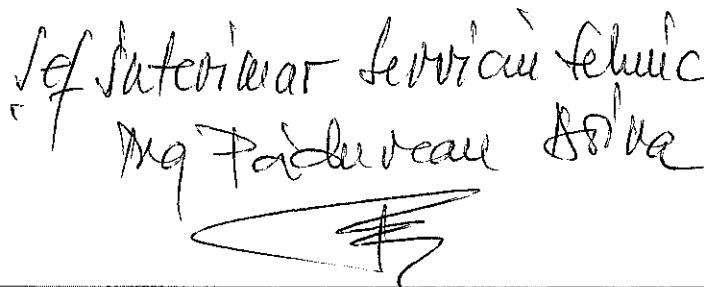 Șef Interimar Serviciu Tehnic
Ing Pădurean Doina